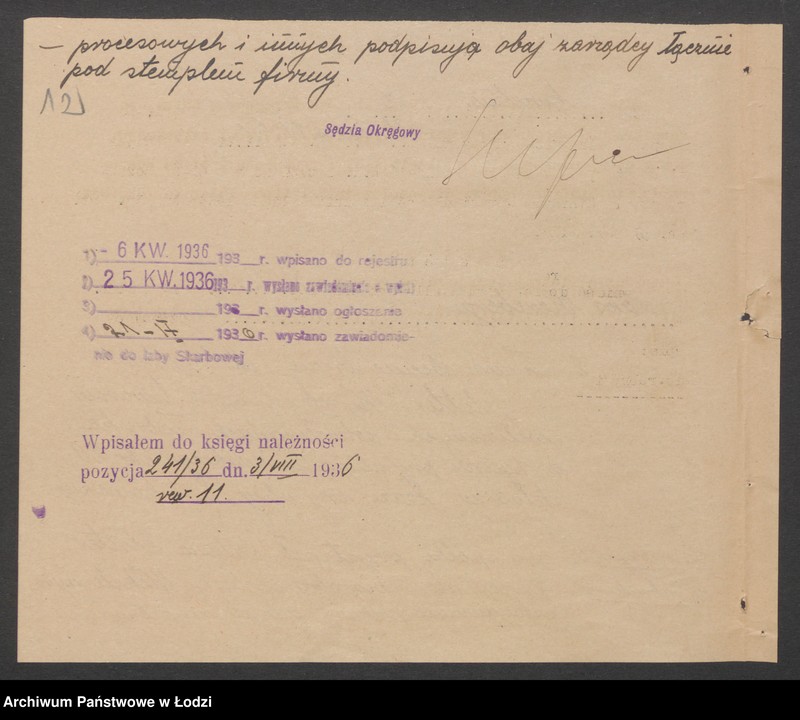 – procesowych i innych podpisują obaj zarządcy łącznie
pod stemplem firmy.
12
Sędzia Okręgowy
1) - 6 KW. 1936 193 r. wpisano do rejestru
2) 25 KW. 1936 r. wysłano zawiadomienie o
3) 193 r. wysłano ogłoszenie
4) 21-IV 1936 r. wysłano zawiadomie-
nie do Izby Skarbowej
Wpisałem do księgi należności
pozycja 241/36 dn. 3/VIII 1936
rew. 11.
Archiwum Państwowe w Łodzi